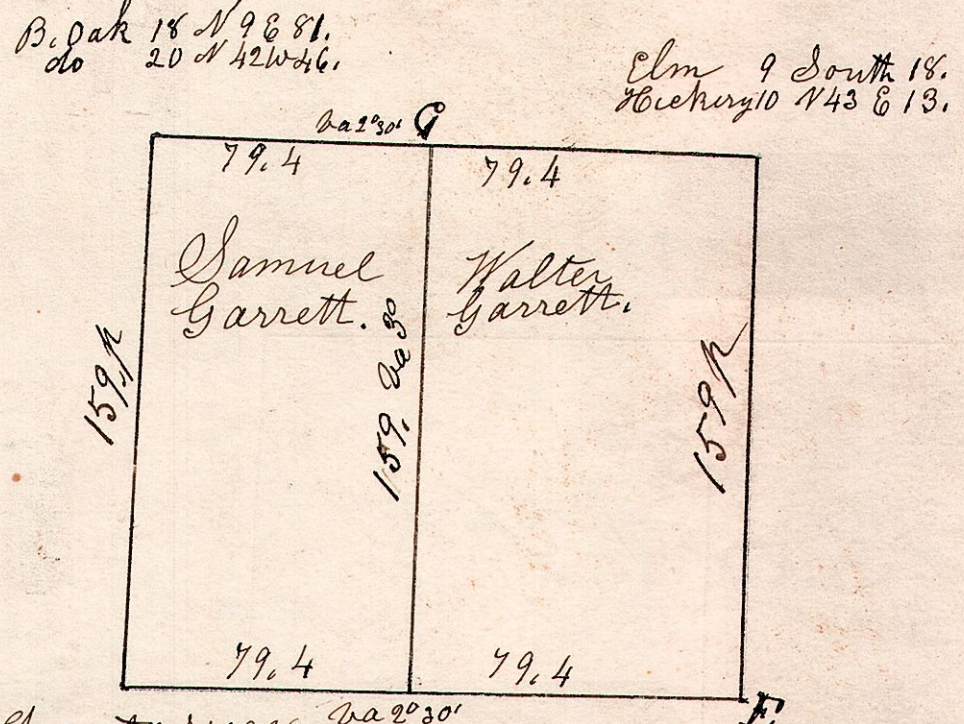 B. Oak 18 N 9 E 81.
do 20 N 42 W 46.
Elm 9 South 18.
Hickery 10 N 43 E 13.
Va 2° 30' G
79.4 79.4
Samuel
Garrett.
Walter
Garrett.
159 p
159. Va 3°
159 p
79.4 79.4
Va 2° 30'